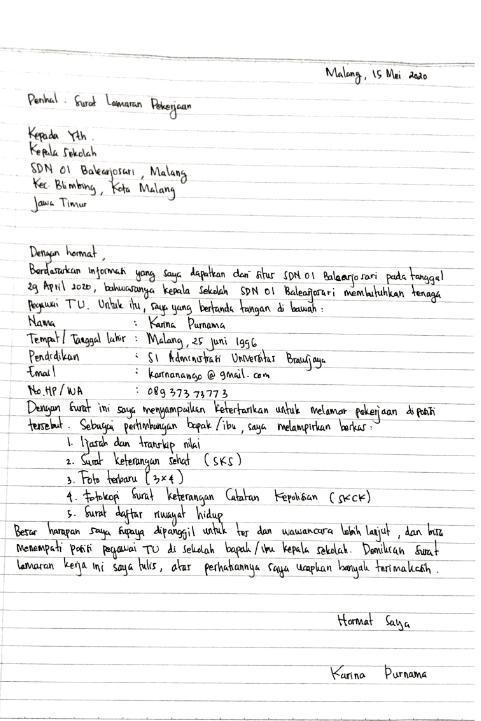 Malang, 15 Mei 2020
Perihal : Surat Lamaran Pekerjaan
Kepada Yth.
Kepala Sekolah
SDN 01 Balearjosari, Malang
Kec. Blimbing, Kota Malang
Jawa Timur
Dengan hormat,
Berdasarkan informasi yang saya dapatkan dari situs SDN 01 Balearjosari pada tanggal
29 April 2020, bahwasanya kepala sekolah SDN 01 Balearjosari membutuhkan tenaga
pegawai TU. Untuk itu, saya yang bertanda tangan di bawah :
Nama : Karina Purnama
Tempat/ Tanggal lahir : Malang, 25 juni 1996
Pendidikan : S1 Administrasi Universitas Brawijaya
Email : @gmail.com
No.HP/WA : 089 373 73773
Dengan surat ini saya menyampaikan ketertarikan untuk melamar pekerjaan di posisi
tersebut. Sebagai pertimbangan bapak/ibu, saya melampirkan berkas :
1. Ijasah dan transkip nilai
2. Surat keterangan sehat (SKS)
3. Foto terbaru (3x4)
4. Fotokopi Surat keterangan Catatan Kepolisian (SKCK)
5. Surat daftar riwayat hidup
Besar harapan saya supaya dipanggil untuk tes dan wawancara lebih lanjut, dan bisa
menempati posisi pegawai TU di sekolah bapak/ibu kepala sekolah. Demikian surat
lamaran kerja ini saya tulis, atas perhatiannya saya ucapkan banyak terimakasih.
Hormat Saya
Karina Purnama